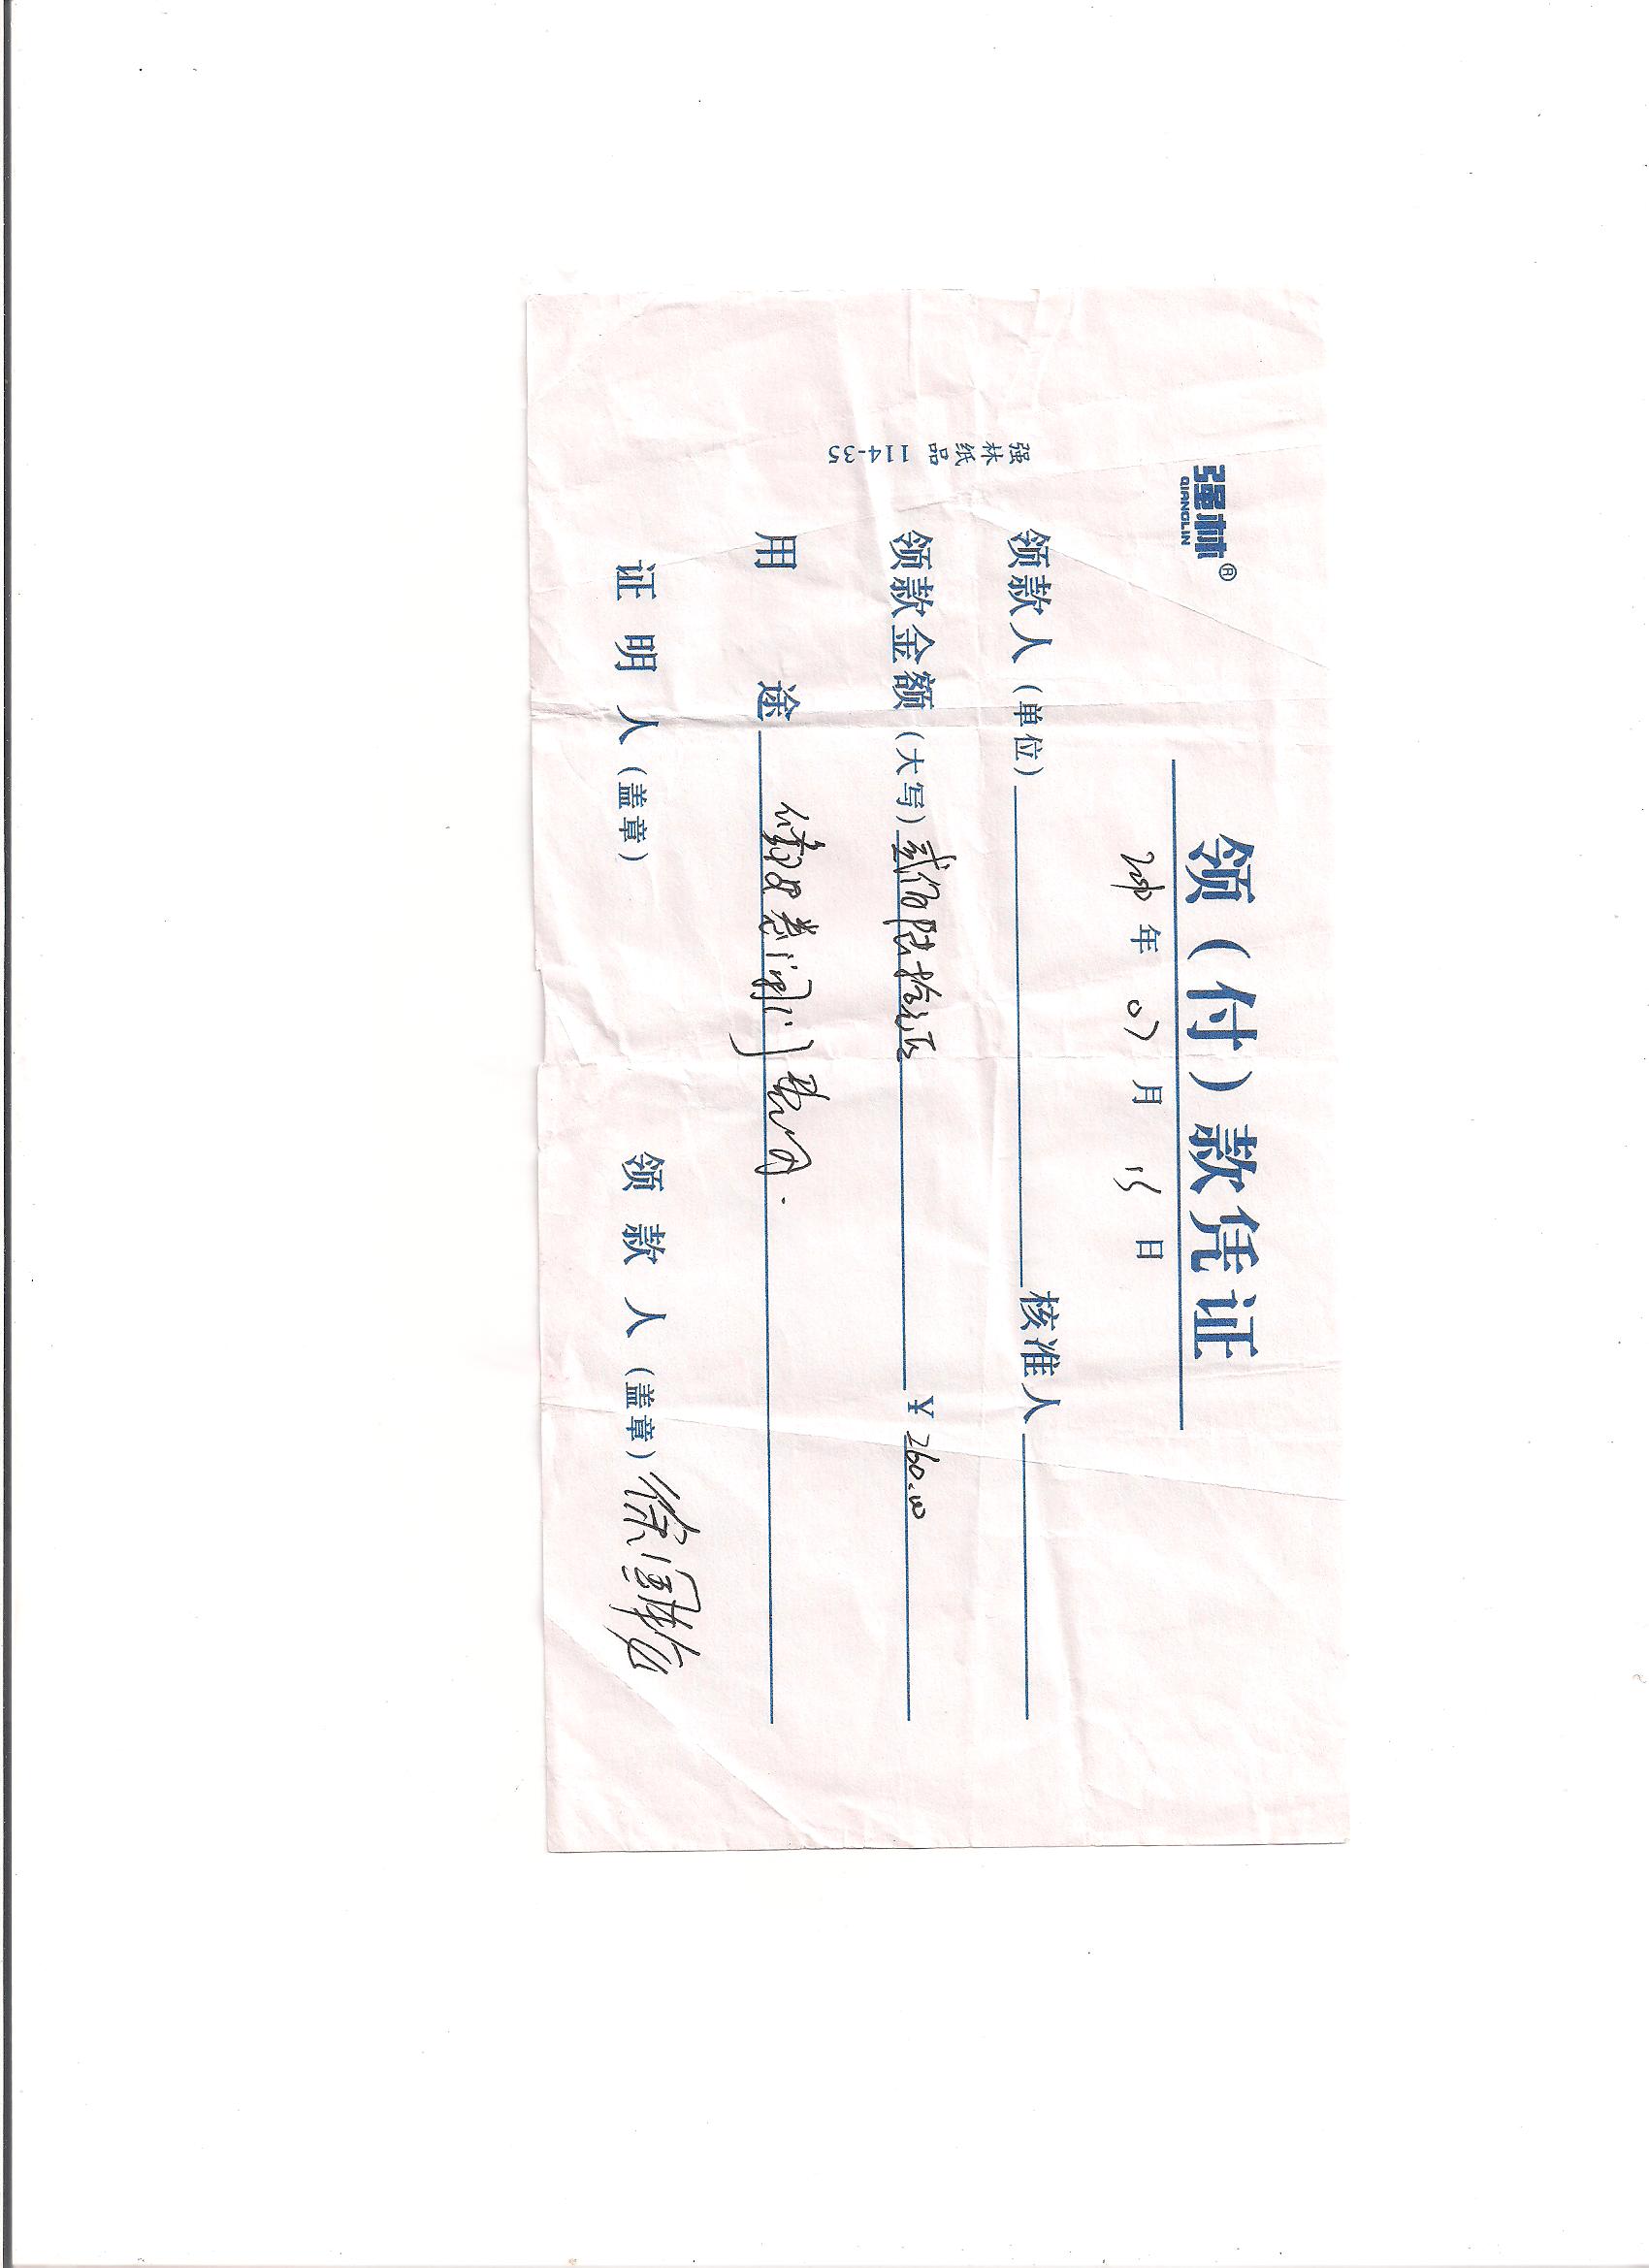 强林®
QIANGLIN
领（付）款凭证
年 07 月 15 日
领款人（单位） 核准人
领款金额（大写）贰佰陆拾元 ¥ 260.00
用 途
证 明 人（盖章） 领 款 人（盖章）徐国
强林纸品 114-35